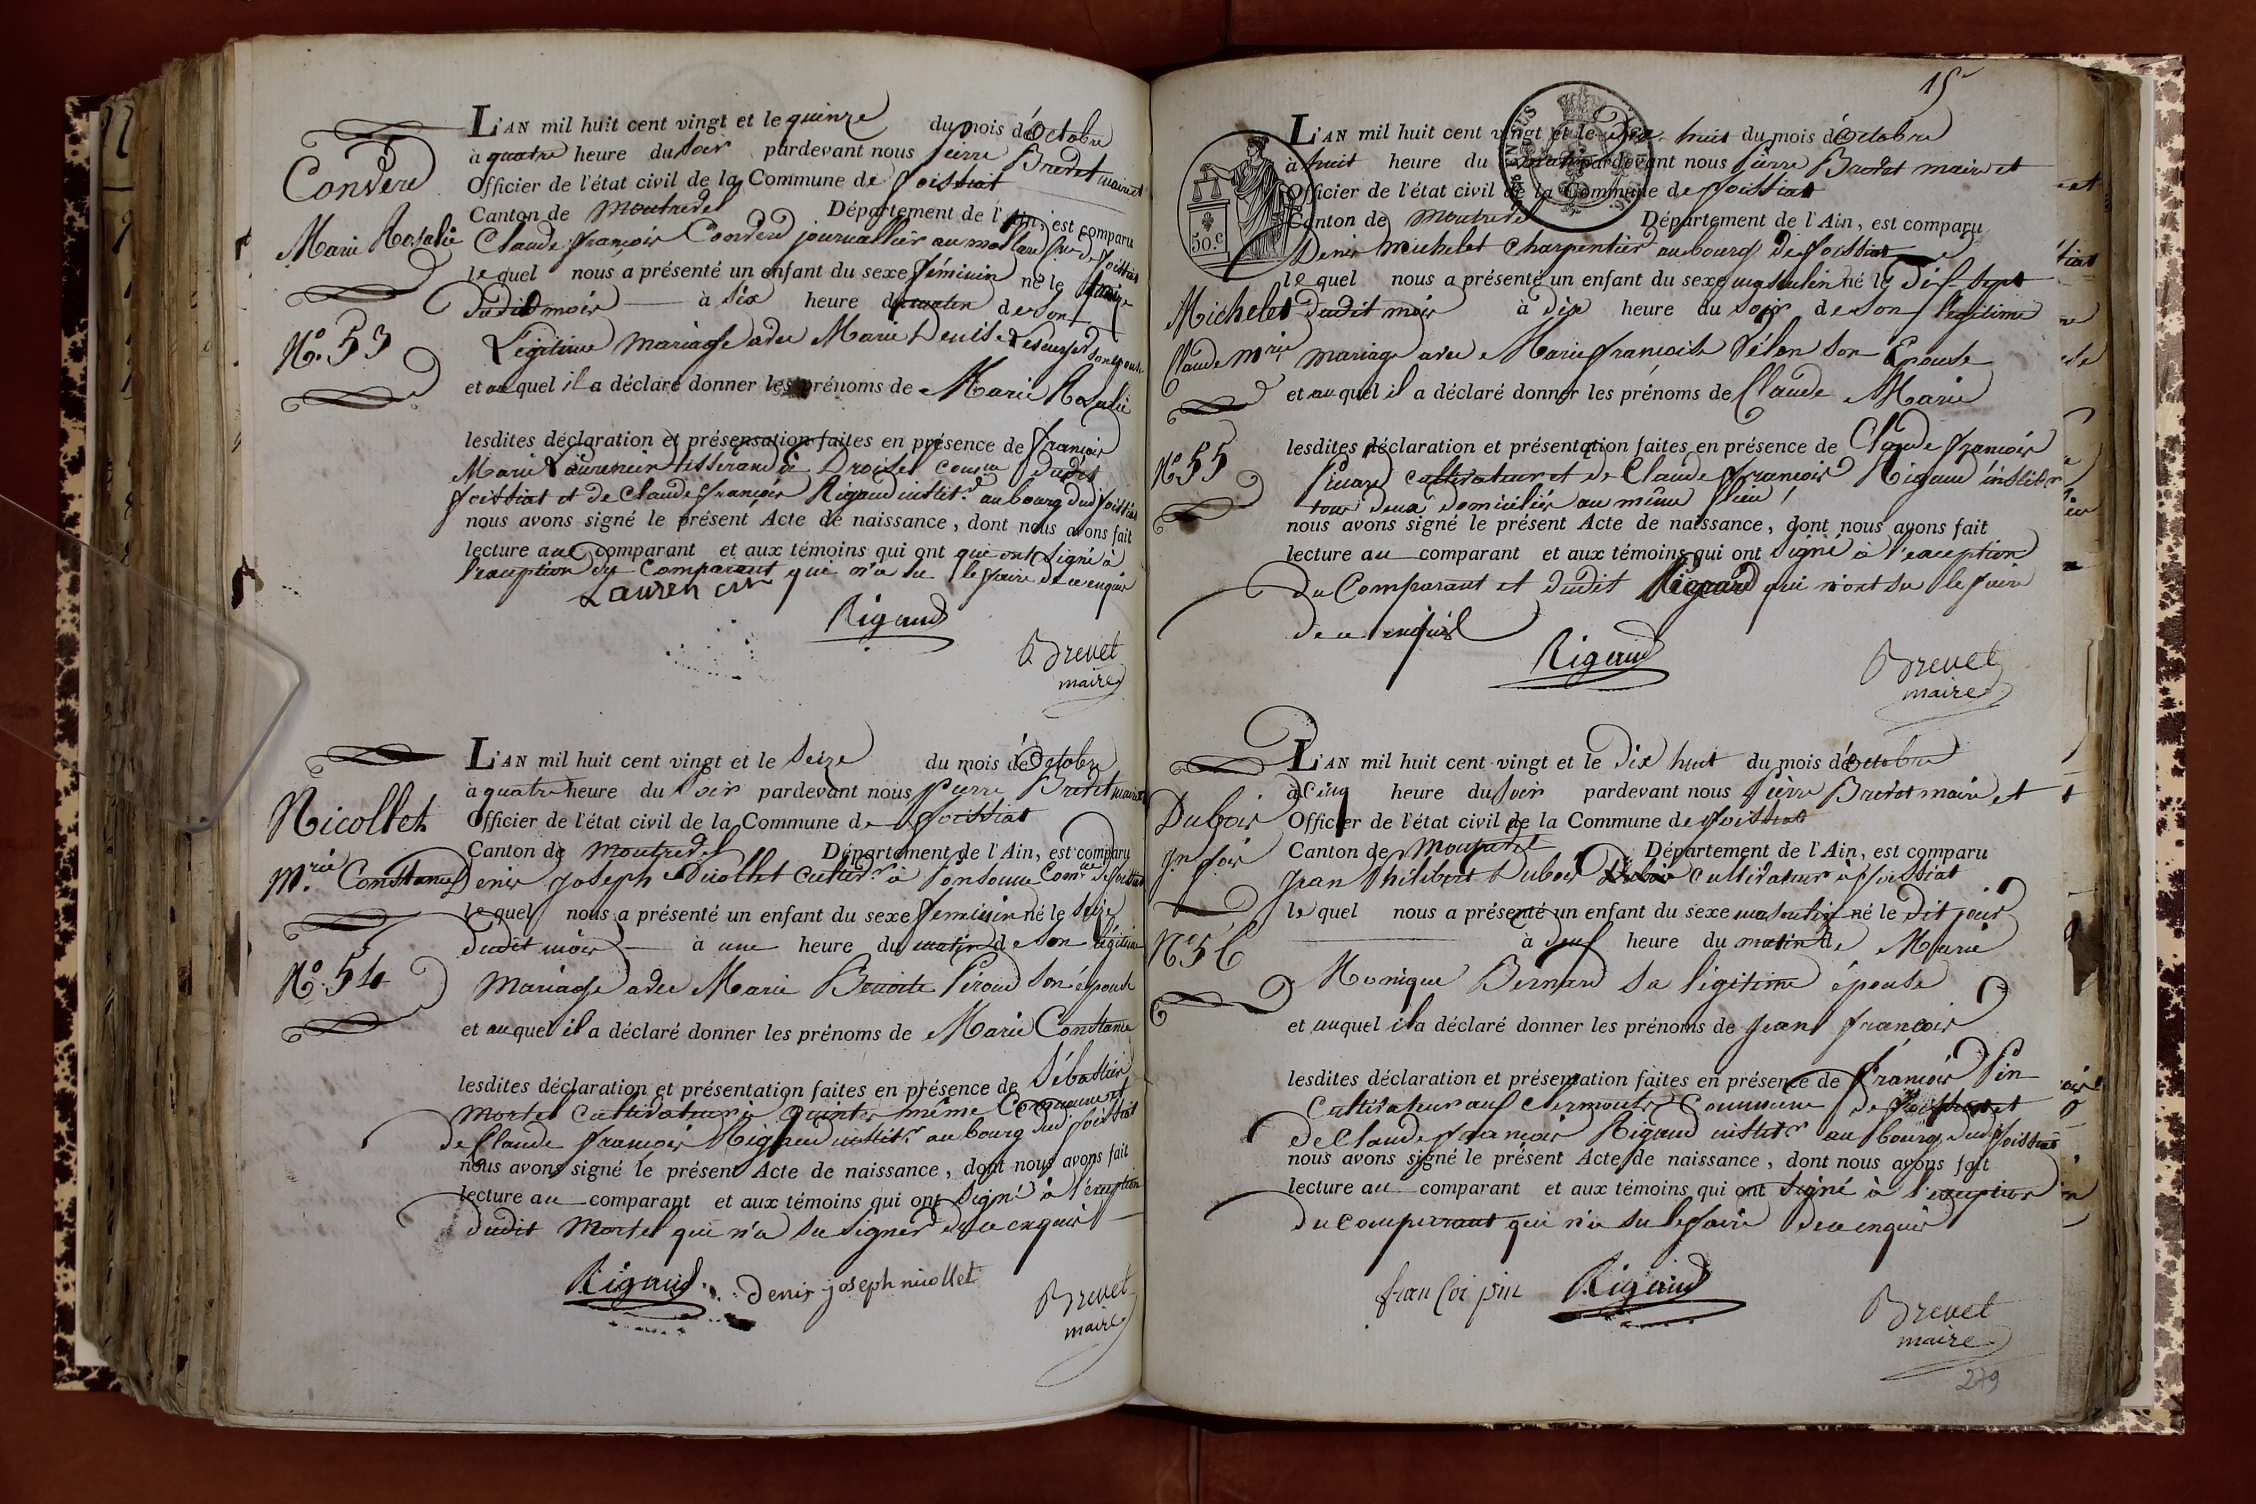 Convere
Marie Rosalie
N.o 53
L'AN mil huit cent vingt et le quinze du mois de octobre
à quatre heure du soir pardevant nous Pierre Brevet maire et
Officier de l'état civil de la Commune de foissiat
Canton de Montrevel Département de l'Ain, est comparu
Claude françois Convere journallier au
le quel nous a présenté un enfant du sexe féminin né le quinze
dudit mois à six heure du matin de son
Légitime mariage avec Marie Denise son épouse
et au quel il a déclaré donner les prénoms de Marie Rosalie
lesdites déclaration et présensation faites en présence de françois
Marie Laurencin tisserand à Comune dudit
foissiat et de Claude françois Rigaud instit.r au bourg dud foissiat
nous avons signé le présent Acte de naissance, dont nous avons fait
lecture au comparant et aux témoins qui ont qui ont signé à
l'exception du Comparant qui n'a su le faire de ce enquis
Laurencin
Rigaud
Brevet
maire
Nicollet
M.rie Constance
N.o 54
L'AN mil huit cent vingt et le Seize du mois de octobre
à quatre heure du soir pardevant nous Pierre Brevet maire et
Officier de l'état civil de la Commune de foissiat
Canton de Montrevel Département de l'Ain, est comparu
Denis Joseph Nicollet cultiv.r à
le quel nous a présenté un enfant du sexe feminin né le seize
dudit mois à une heure du matin de son légitime
mariage avec Marie Benoite Péroud son épouse
et au quel il a déclaré donner les prénoms de Marie Constance
lesdites déclaration et présentation faites en présence de Sébastien
Mortel cultivateur à même Commune et
de Claude françois Rigaud instit.r au bourg dud foissiat
nous avons signé le présent Acte de naissance, dont nous avons fait
lecture au comparant et aux témoins qui ont signé à l'exception
dudit Mortel qui n'a su signer de ce enquis
Rigaud
Denis joseph nicollet
Brevet
maire
15
50.c
Michelet
Claude M.rie
N.o 55
L'AN mil huit cent vingt et le dix huit du mois de octobre
à huit heure du matin pardevant nous Pierre Brevet maire et
Officier de l'état civil de la Commune de foissiat
Canton de Montrevel Département de l'Ain, est comparu
Denis Michelet Charpentier au bourg de foissiat
le quel nous a présenté un enfant du sexe masculin né le dix sept
dudit mois à dix heure du soir de son légitime
mariage avec Marie françoise son Epouse
et au quel il a déclaré donner les prénoms de Claude Marie
lesdites déclaration et présentation faites en présence de Claude françois
cultivateur et de Claude françois Rigaud instit.r
tous deux domiciliés au même lieu
nous avons signé le présent Acte de naissance, dont nous avons fait
lecture au comparant et aux témoins qui ont signé à l'exception
du Comparant et dudit qui n'ont su le faire
de ce enquis
Rigaud
Brevet
maire
Dubois
Jn fois
N.o 56
L'AN mil huit cent vingt et le dix huit du mois de octobre
à Cinq heure du soir pardevant nous Pierre Brevet maire et
Officier de l'état civil de la Commune de foissiat
Canton de Montrevel Département de l'Ain, est comparu
Jean Philibert Dubois cultivateur à foissiat
le quel nous a présenté un enfant du sexe masculin né le dit jour
à neuf heure du matin de Marie
Monique Bernard sa légitime épouse
et auquel il a déclaré donner les prénoms de Jean françois
lesdites déclaration et présentation faites en présence de françois Pin
cultivateur au Clermont Commune de foissiat et
de Claude françois Rigaud instit.r au bourg dud foissiat
nous avons signé le présent Acte de naissance, dont nous avons fait
lecture au comparant et aux témoins qui ont signé à l'exception
du comparant qui n'a su le faire de ce enquis
francoi pin
Rigaud
Brevet
maire
279